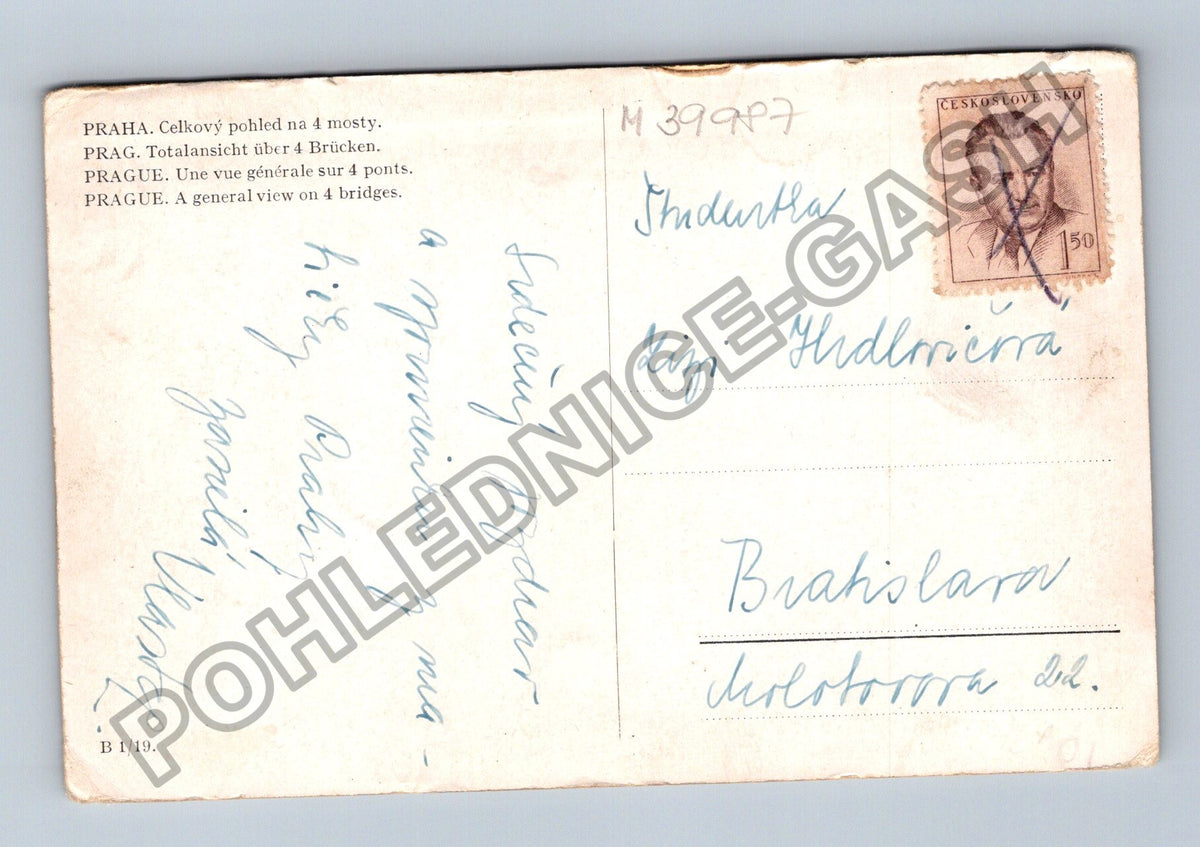 PRAHA. Celkový pohled na 4 mosty.
PRAG. Totalansicht über 4 Brücken.
PRAGUE. Une vue générale sur 4 ponts.
PRAGUE. A general view on 4 bridges.
Srdečný pozdrav
a spomienku z ma-
Prahy
zasielá
Vlasta.
B 1/19.
M 39987
ČESKOSLOVENSKO
1 50
Studentka
Hrdlovičová
Bratislava
Molotovova 22.
POHLEDNICE-GASH